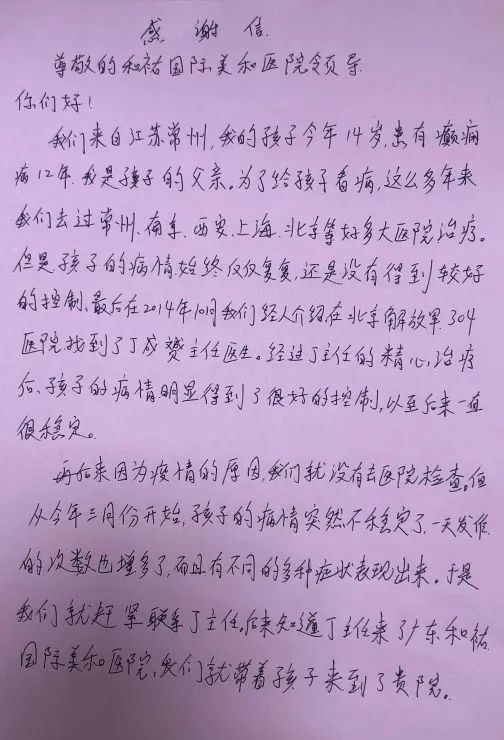 感谢信
尊敬的和祐国际美和医院领导
你们好！
我们来自江苏常州，我的孩子今年14岁，患有癫痫
病12年．我是孩子的父亲。为了给孩子看病，这么多年来
我们去过常州、南京、西安、上海、北京等好多大医院治疗。
但是孩子的病情始终仅仅复复，还是没有得到较好
的控制、最后在2014年10月我们经人介绍，在北京解放军304
医院找到了丁成赟主任医生。经过丁主任的精心治疗
后、孩子的病情明显得到了很好的控制，以至后来一直
很稳定。
再后来因为疫情的原因，我们就没有去医院检查。但
从今年三月份开始，孩子的病情突然不稳定了，一天发作
的次数也增多了，而且有不同的多种症状表现出来。于是
我们就赶紧联系丁主任。后来知道丁主任来了广东和祐
国际美和医院，我们就带着孩子来到了贵院。